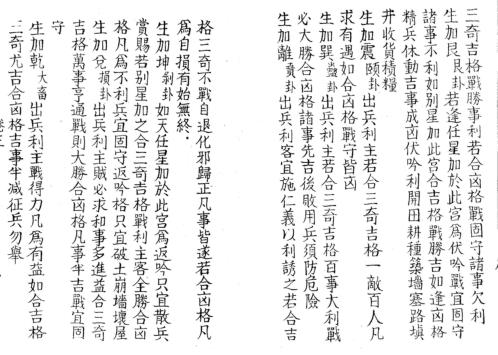 三奇吉格戰勝事利若合凶格戰固守諸事欠利
生加艮艮卦若逢任星加於此宮為伏吟戰宜固守
諸事不利如別星加此宮合吉格戰勝吉如逢凶格
精兵休動吉事成凶伏吟利開田耕種築墻塞路塡
井收貨積糧
生加震頤卦出兵利主若合三奇吉格一敵百人凡
求有遇如合凶格戰守皆凶
生加巽蠱卦出兵利主若合三奇吉格百事大利戰
必大勝合凶格諸事先吉後敗用兵須防危險
生加離賁卦出兵利客宜施仁義以利誘之若合吉
格三奇不戰自退化邪歸正凡事皆遂若合凶格凡
為自損有始無終．
生加坤剝卦如天任星加於此宮為返吟只宜散兵
賞賜若別星加之合三奇吉格戰利主客全勝合凶
格凡為不利兵宜固守返吟格只宜破土崩墻壞屋
生加兌損卦出兵利主賊必求和事多進益合三奇
吉格萬事亨通戰則大勝合凶格凡事半吉戰宜固
守
生加乾大畜出兵利主戰得力凡為有益如合吉格
三奇尤吉合凶格吉事半減征兵勿舉